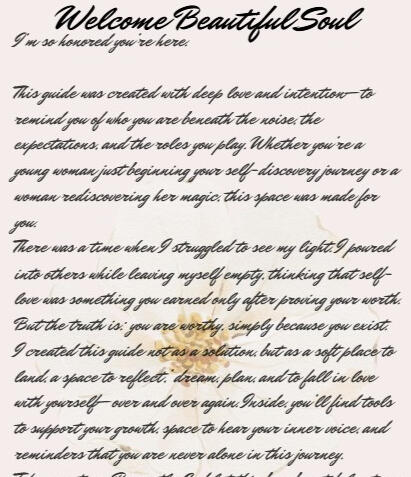 Welcome Beautiful Soul
I'm so honored you're here.
This guide was created with deep love and intention—to
remind you of who you are beneath the noise, the
expectations, and the roles you play. Whether you're a
young woman just beginning your self-discovery journey or a
woman rediscovering her magic, this space was made for
you.
There was a time when I struggled to see my light. I poured
into others while leaving myself empty, thinking that self-
love was something you earned only after proving your worth.
But the truth is: you are worthy, simply because you exist.
I created this guide not as a solution, but as a soft place to
land, a space to reflect, dream, plan, and to fall in love
with yourself—over and over again. Inside, you'll find tools
to support your growth, space to hear your inner voice, and
reminders that you are never alone in this journey.